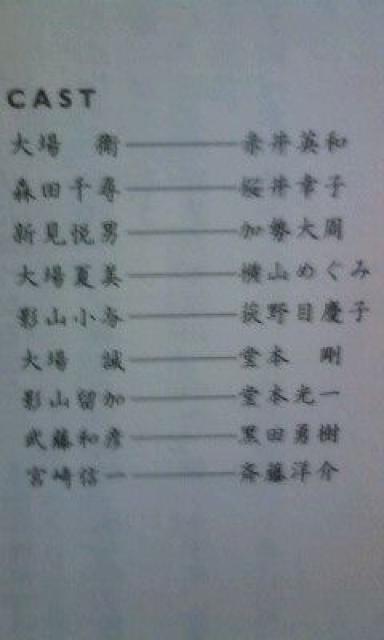 CAST
大場　衛――――赤井英和
森田千尋――――桜井幸子
新見悦男――――加勢大周
大場夏美――――横山めぐみ
影山小与――――荻野目慶子
大場　誠――――堂本　剛
影山留加――――堂本光一
武藤和彦――――黒田勇樹
宮崎信一――――斎藤洋介